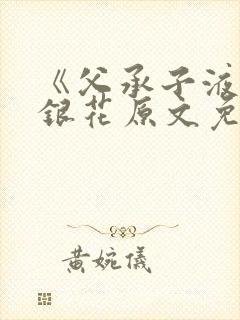 《父承子液
銀花原文免
黃婉儀